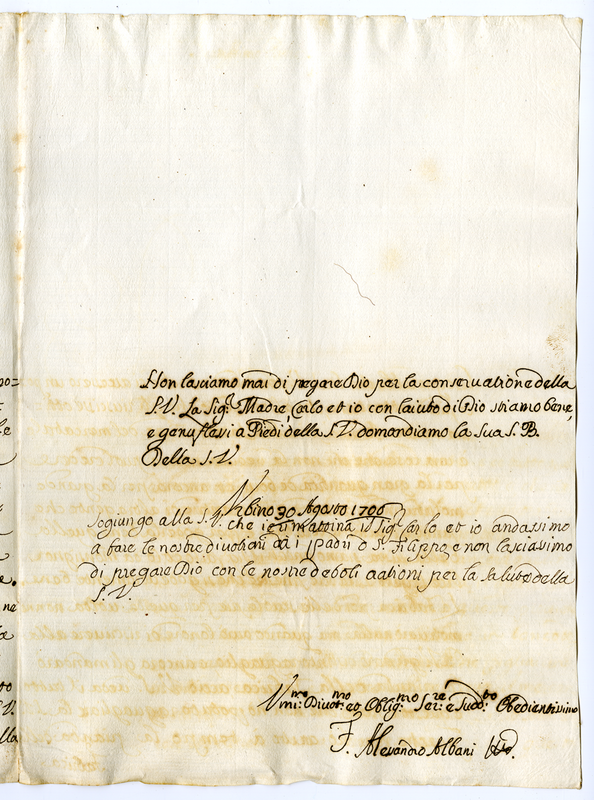 Non lasciamo mai di pregare Dio per la conseruatione della
S.V. La Sig.ra Madre, Carlo et io con l'aiuto di Dio stiamo bene,
e genuflessi a Piedi della S.V. domandiamo la sua S. B.
Della S.V.
Urbino 30 Agosto 1706
Sogiungo alla S.V. che ieri mattina il Sig.r Carlo et io andassimo
a fare le nostre diuotioni da i Padri di S. Filippo, e non lasciassimo
di pregare Dio con le nostre deboli orationi per la salute della
S.V.
Vmi:mo Diuot:mo et Oblig:mo Ser:re e Sudd:to Obedientissimo
F. Alesandro Albani